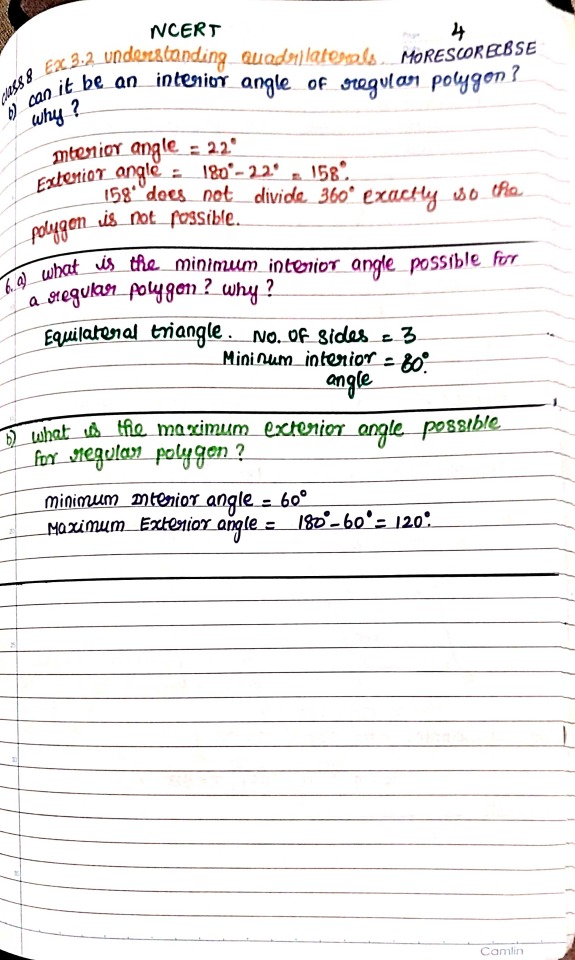 NCERT 4
class 8 Ex 3.2 understanding quadrilaterals. MORESCORECBSE
b) can it be an interior angle of regular polygon?
why?
Interior angle = 22°
Exterior angle = 180° - 22° = 158°.
158° does not divide 360° exactly so the
polygon is not possible.
6. a) what is the minimum interior angle possible for
a regular polygon? why?
Equilateral triangle. No. of sides = 3
Mininum interior = 60°.
angle
b) what is the maximum exterior angle possible
for regular polygon?
minimum Interior angle = 60°
Maximum Exterior angle = 180° - 60° = 120°.
Camlin